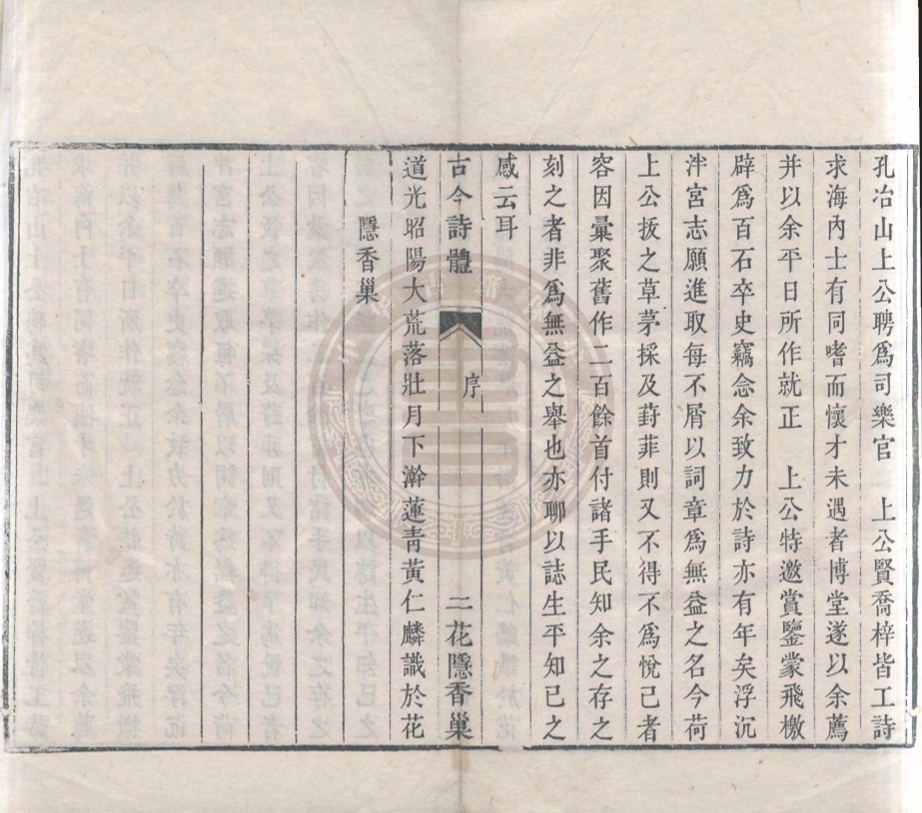 孔冶山上公聘爲司樂官　上公賢喬梓皆工詩
求海內士有同嗜而懷才未遇者博堂遂以余薦
并以余平日所作就正　上公特邀賞鑒蒙飛檄
辟爲百石卒史竊念余致力於詩亦有年矣浮沉
泮宮志願進取每不屑以詞章爲無益之名今荷
上公拔之草茅採及葑菲則又不得不爲悅己者
容因彙聚舊作二百餘首付諸手民知余之存之
刻之者非爲無益之舉也亦聊以誌生平知己之
感云耳
古今詩體　序　二　花隱香巢
道光昭陽大荒落壯月下澣蓮靑黃仁麟識於花
隱香巢